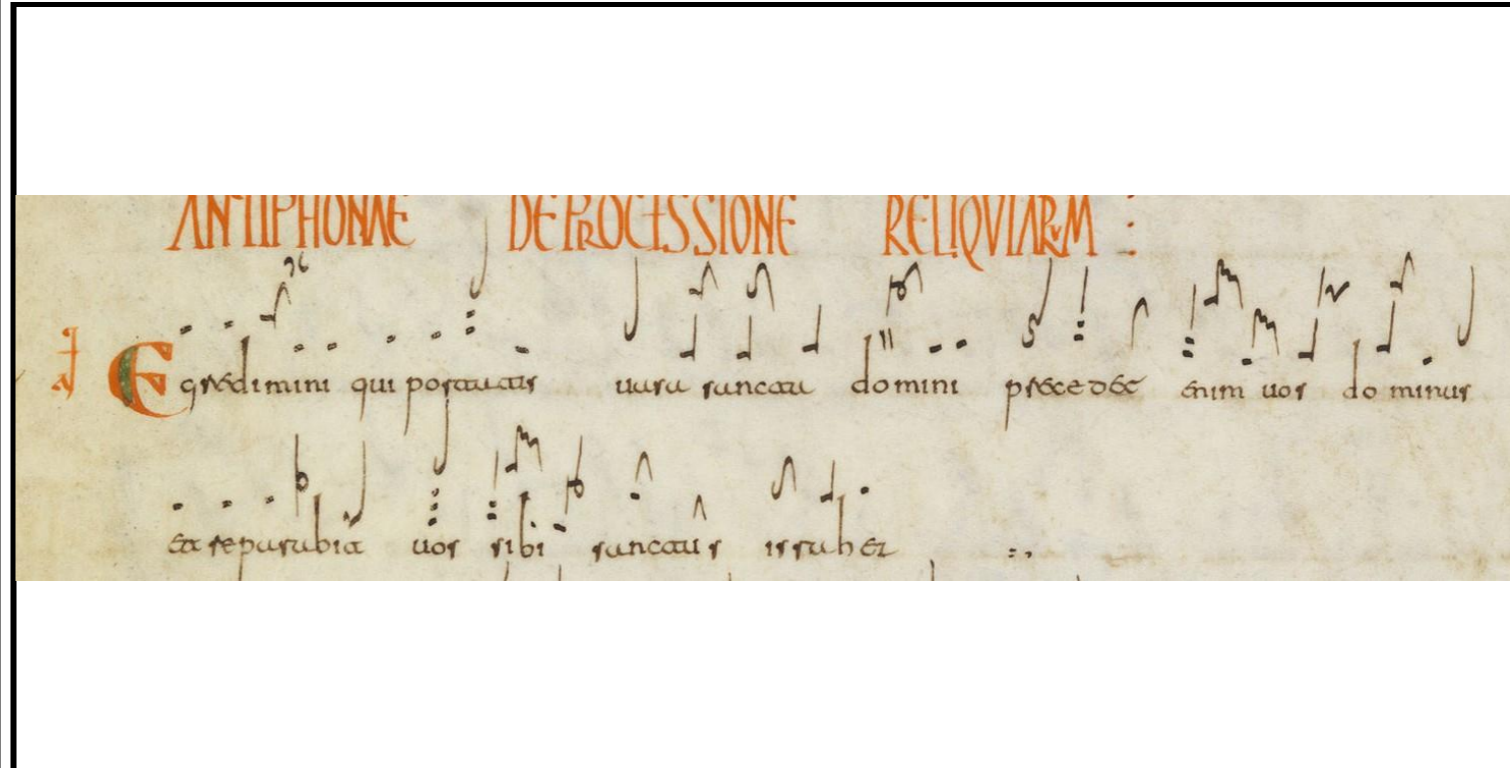 ANTIPHONAE DE PROCESSIONE RELIQVIARVM :
Egredimini qui portatis uasa sancta domini precedet enim uos dominus
et separabit uos sibi sanctus israhel